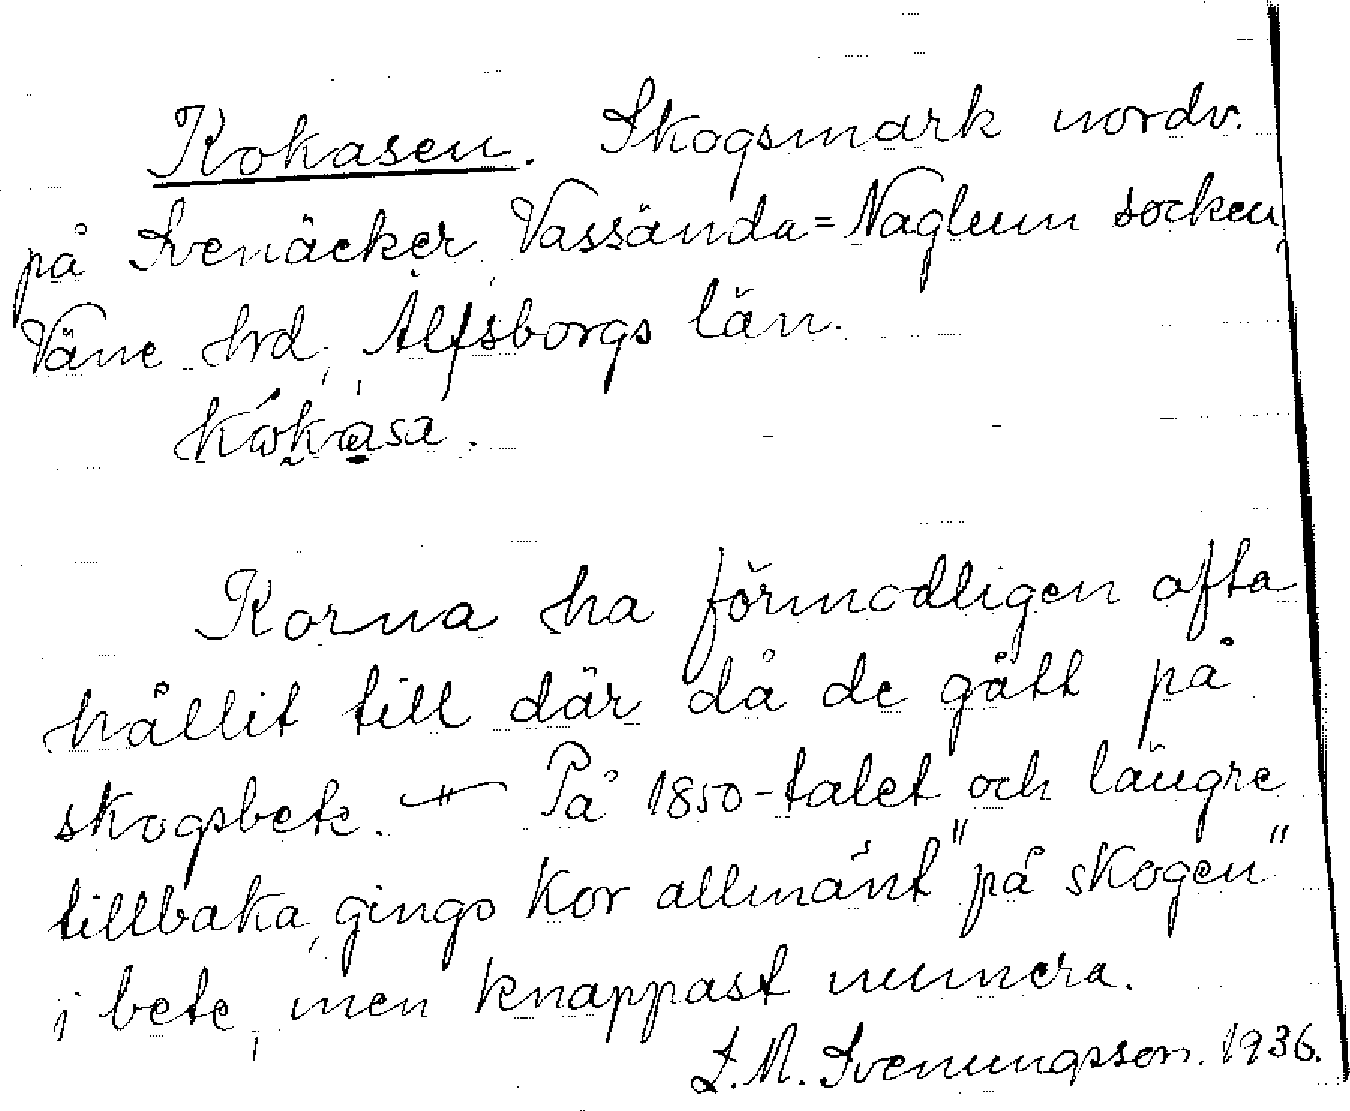 Kokasen. Skogsmark nordv.
på Svenäcker, Vassända=Naglum socken,
Väne hrd, Älfsborgs län.
Korna ha förmodligen ofta
hållit till där då de gått på
skogsbete. — På 1850-talet och längre
tillbaka, gings kor allmänt "på skogen"
i bete, men knappast numera.
L. M. Svenungsson. 1936.